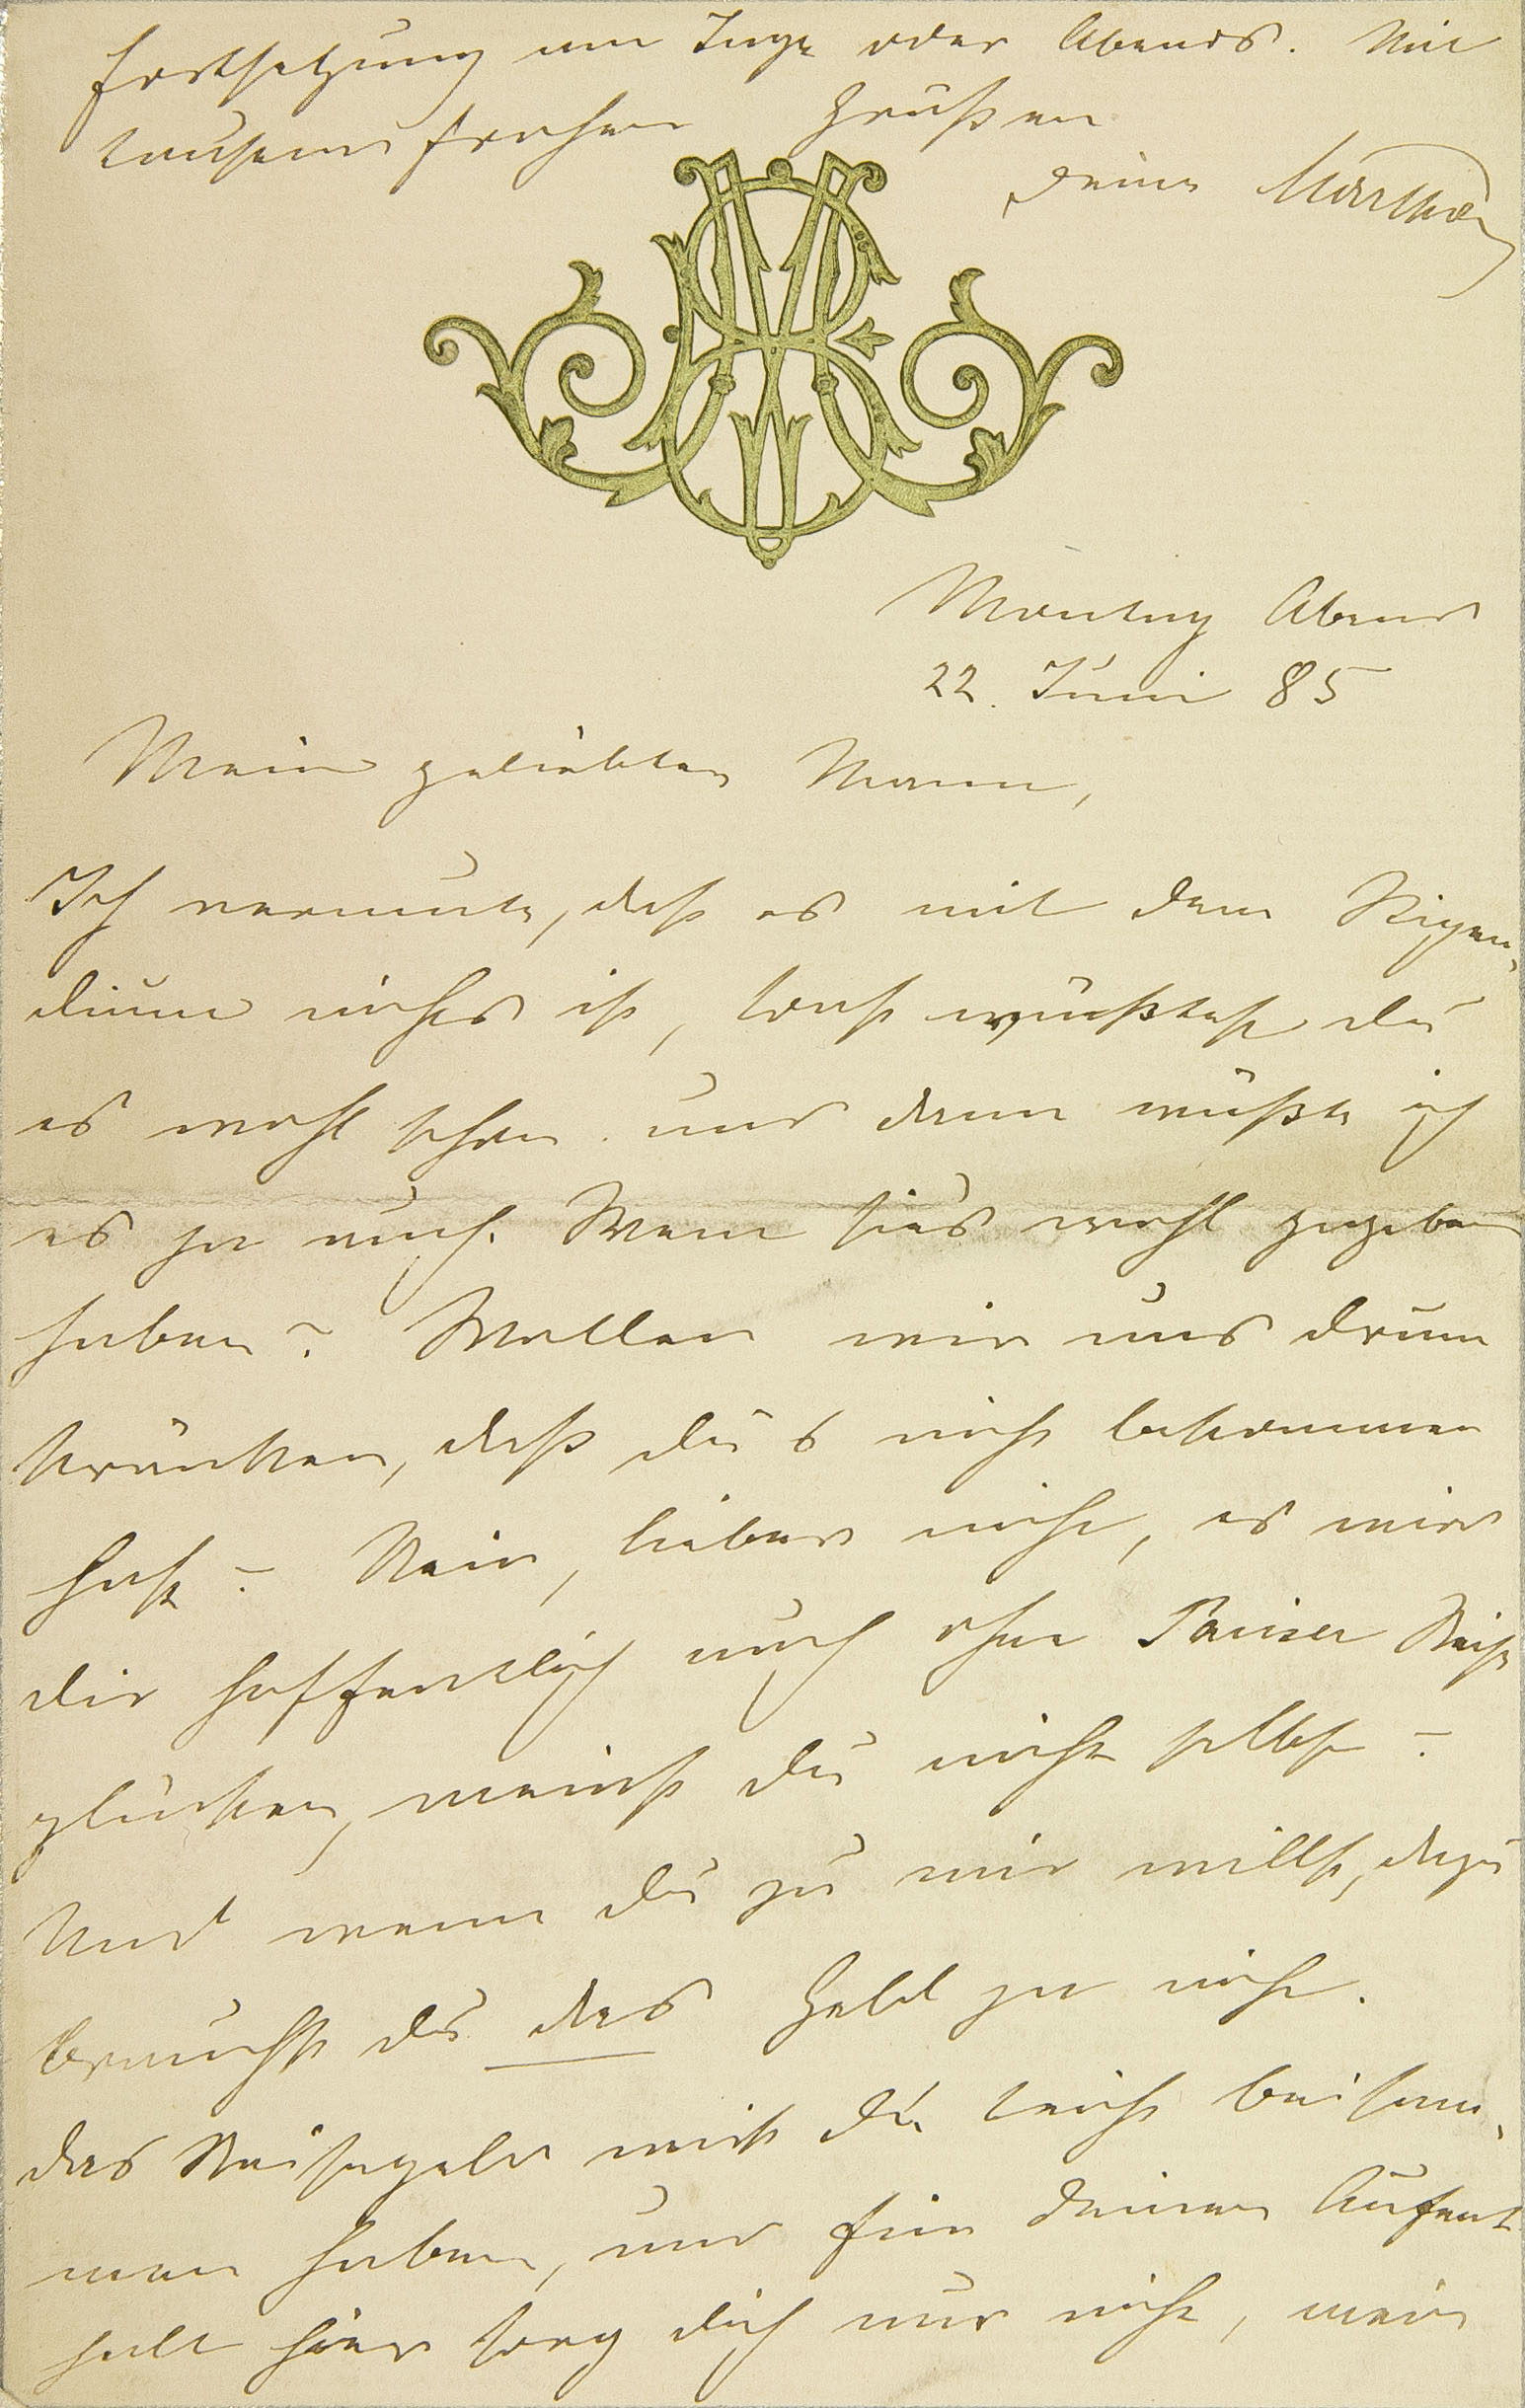 Fortsetzung am Tage oder Abends. Mit
tausend frohen Grüßen
deine Martha
Montag Abend
22. Juni 85
Mein geliebter Mann,
Ich vermute, daß es mit dem Stipen-
dium nichts ist, sonst wüßtest du
es wohl schon und dann wüßte ich
es ja auch. Wem sies wohl gegeben
haben? Wollen wir uns drum
kränken, daß du's nicht bekommen
hast? Nein, lieber nicht, es wird
dir hoffentlich auch ohne Pariser Reise
glücken, meinst du nicht selbst?
Und wenn du zu mir willst, dazu
brauchst du das Geld ja nicht.
das Reisegeld wirst du leicht beisam-
men haben, und für deinen Aufent
halt hier sorg dich nur nicht, mein